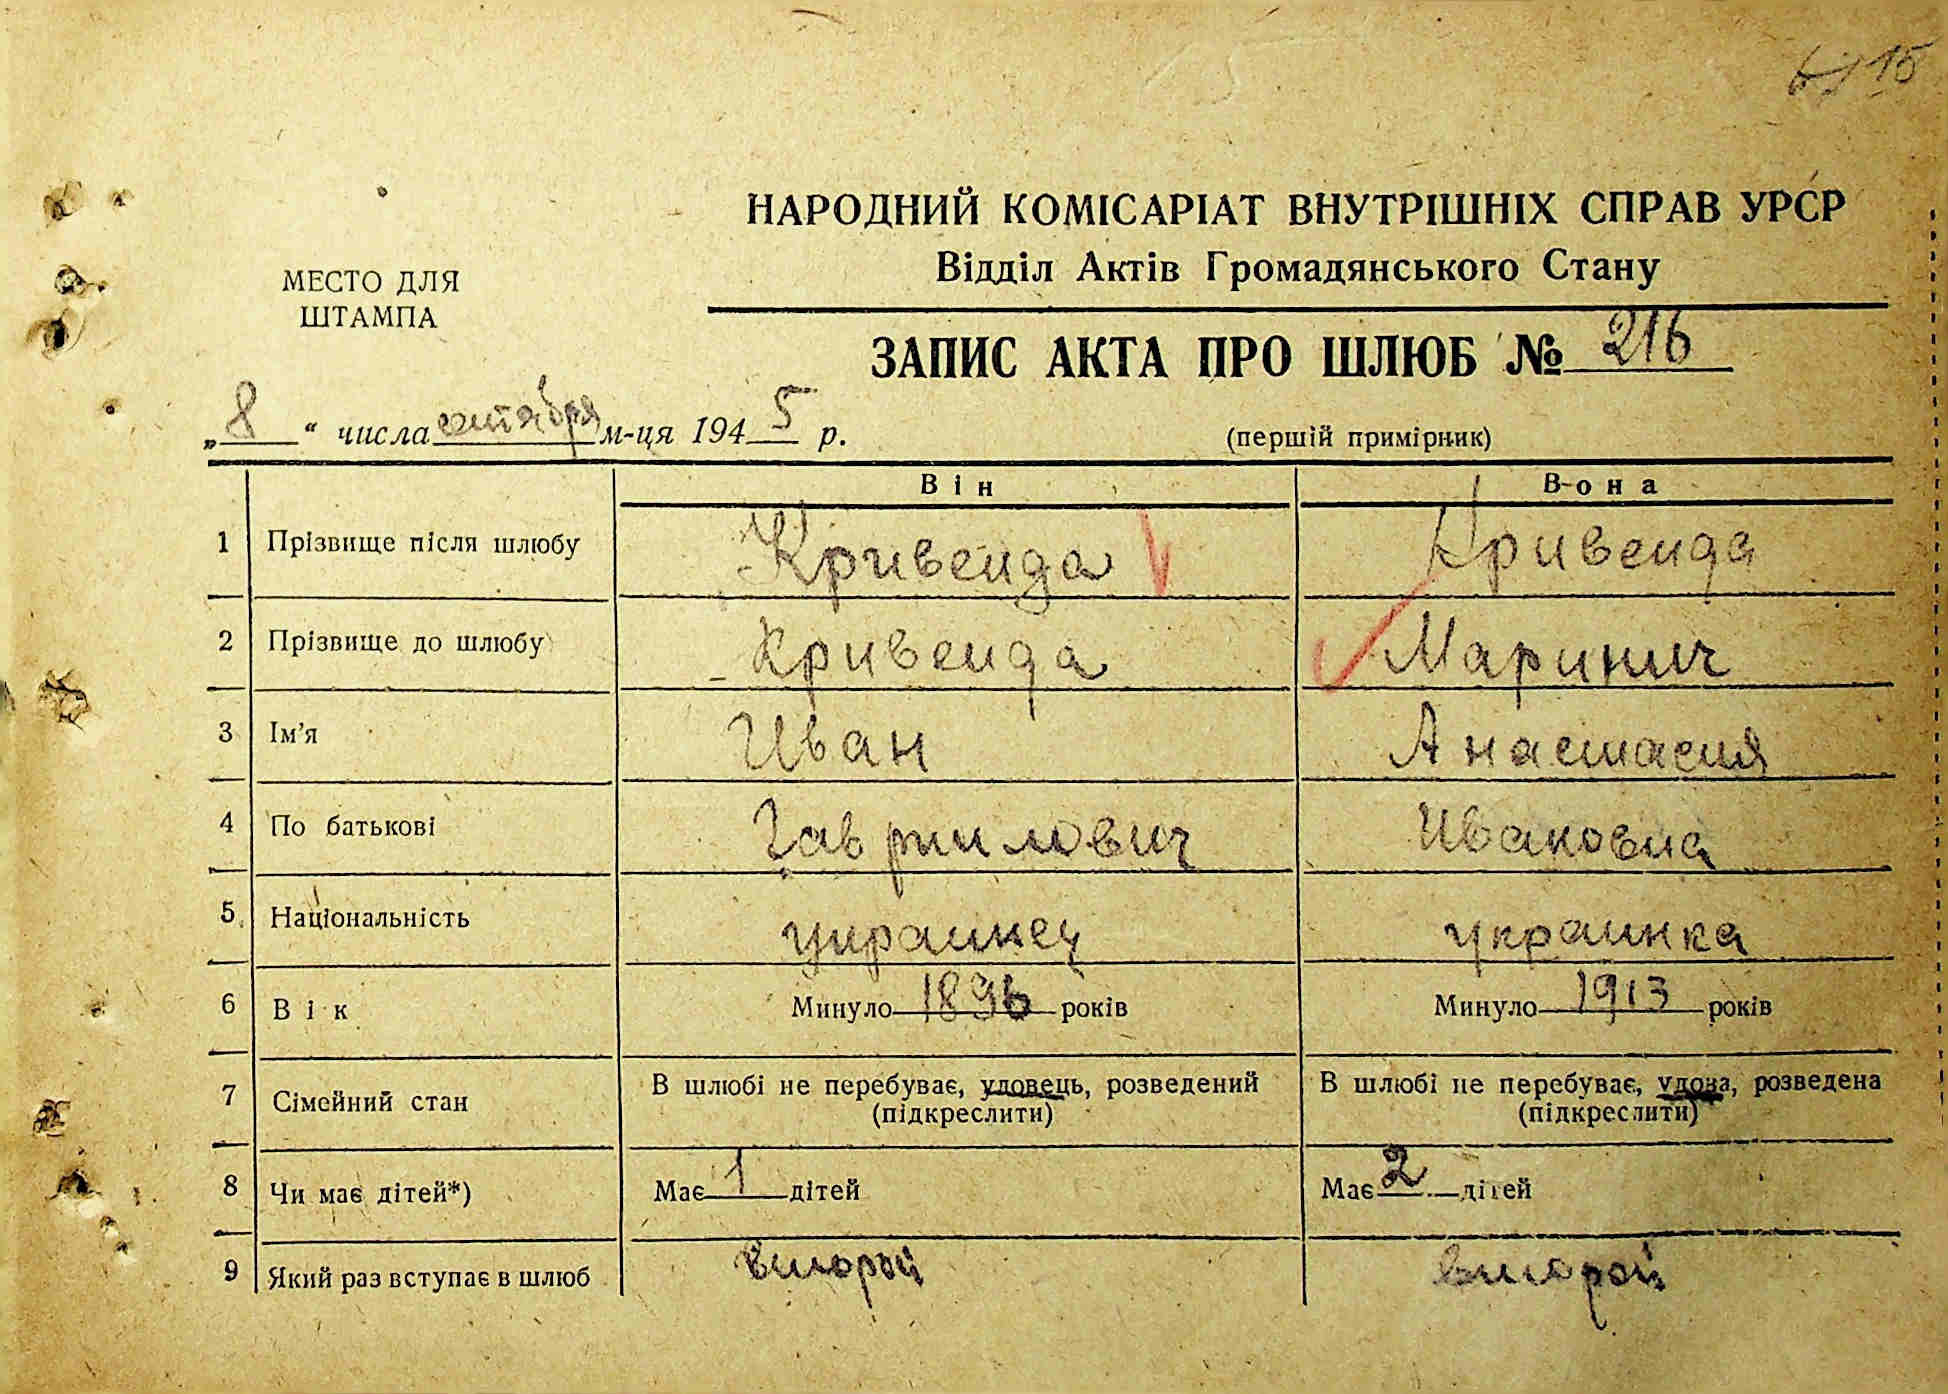 15
НАРОДНИЙ КОМІСАРІАТ ВНУТРІШНІХ СПРАВ УРСР
Відділ Актів Громадянського Стану
МЕСТО ДЛЯ
ШТАМПА
ЗАПИС АКТА ПРО ШЛЮБ № 216
„8“ числа октября м-ця 1945 р.
(перший примірник)
Він Вона
1 Прізвище після шлюбу Кривенда Кривенда
2 Прізвище до шлюбу Кривенда Маринич
3 Ім'я Иван Анастасия
4 По батькові Гаврилович Ивановна
5 Національність украинец украинка
6 Вік Минуло 1896 років Минуло 1913 років
7 Сімейний стан В шлюбі не перебуває, удовець, розведений В шлюбі не перебуває, удова, розведена
(підкреслити) (підкреслити)
8 Чи має дітей*) Має 1 дітей Має 2 дітей
9 Який раз вступає в шлюб второй второй